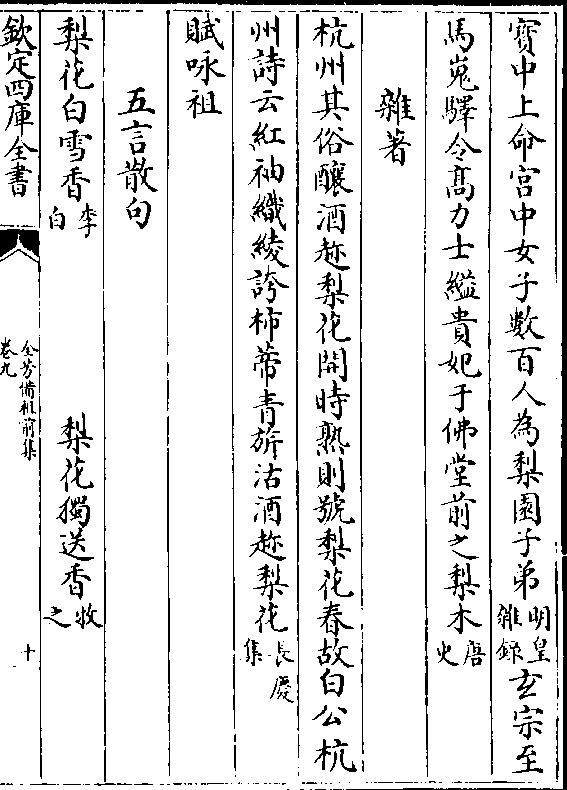 寳中上命宫中女子數百人為梨園子弟明皇雜録玄宗至
馬嵬驛令髙力士縊貴妃于佛堂前之梨木唐史
雜著
杭州其俗釀酒趂梨花開時熟則號梨花春故白公杭
州詩云紅袖織綾誇柿蔕青旂沽酒趂梨花長慶集
賦咏祖
五言散句
梨花白雪香李白 梨花獨送香牧之
欽定四庫全書 全芳備祖前集卷九 十